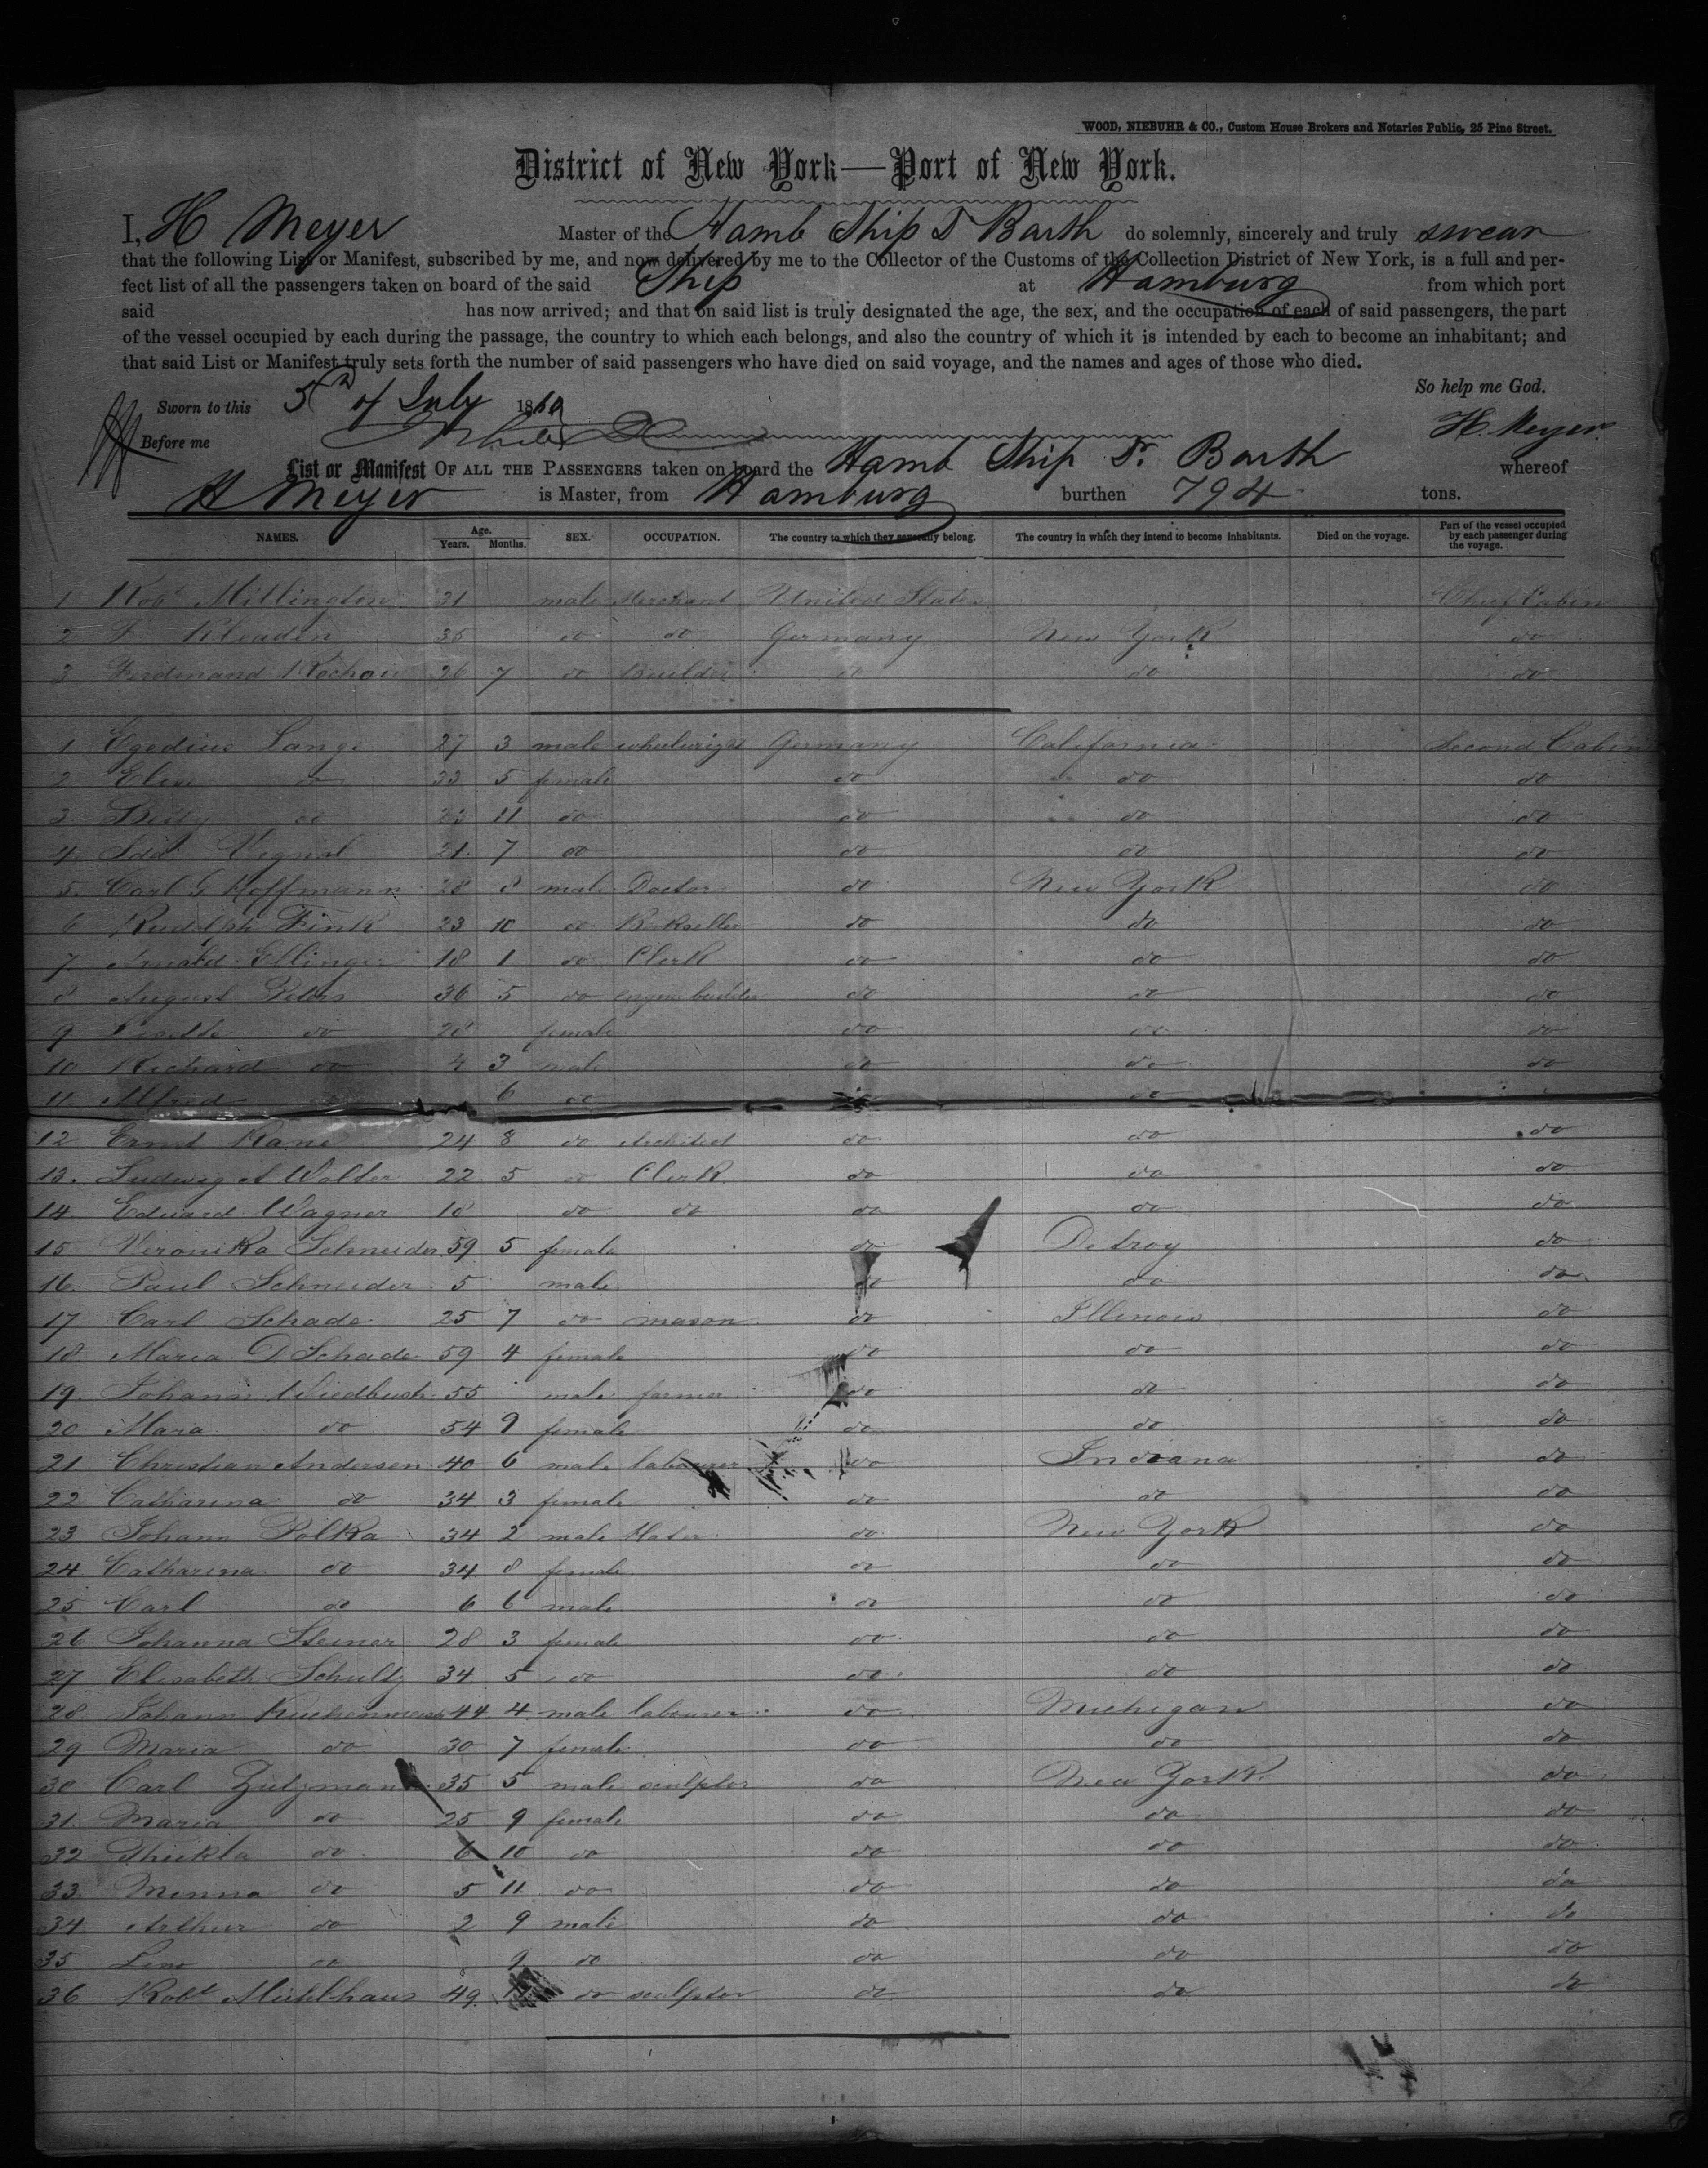 WOOD, NIEBUHR & CO., Custom House Brokers and Notaries Public, 25 Pine Street.
District of New York—Port of New York.
I, H Meyer Master of the Hamb Ship Dr Barth do solemnly, sincerely and truly swear
that the following List or Manifest, subscribed by me, and now delivered by me to the Collector of the Customs of the Collection District of New York, is a full and per-
fect list of all the passengers taken on board of the said Ship at Hamburg from which port
said has now arrived; and that on said list is truly designated the age, the sex, and the occupation of each of said passengers, the part
of the vessel occupied by each during the passage, the country to which each belongs, and also the country of which it is intended by each to become an inhabitant; and
that said List or Manifest truly sets forth the number of said passengers who have died on said voyage, and the names and ages of those who died.
So help me God.
Sworn to this 5th of July 1860
H. Meyer.
Before me
List or Manifest OF ALL THE PASSENGERS taken on board the Hamb Ship Dr. Barth whereof
H Meyer is Master, from Hamburg burthen 794 tons.
NAMES. Age. Years. Months. SEX. OCCUPATION. The country to which they generally belong. The country in which they intend to become inhabitants. Died on the voyage. Part of the vessel occupied by each passenger during the voyage.
1 Robt Millington 31 male Merchant United States Chief Cabin
2 F 35 do do Germany New York do
3 Ferdinand 26 7 do Builder do do do
1 Egedius Lange 27 3 male wheelwright Germany California Second Cabin
2 Elise do 33 5 female do do do
3 Betty do 23 11 do do do do
4 Ida 21 7 do do do do
5 Carl G Hoffmann 28 8 male Doctor do New York do
6 Rudolph Fink 23 10 do Bookseller do do do
7 Arnold Ellinger 18 1 do Clerk do do do
8 August Peters 36 5 do engine builder do do do
9 do 28 female do do do
10 Richard do 4 3 male do do do
11 Alfred 6 do do do
12 Ernst Kane 24 8 do Architect do do do
13. Ludwig A Walter 22 5 do Clerk do do do
14 Eduard Wagner 18 do do do do do
15 Veronika Schneider 59 5 female do Detroy do
16 Paul Schneider 5 male do do do
17 Carl Schade 25 7 do mason do Illinois do
18 Maria D Schade 59 4 female do do do
19 Johann Wiedbusch 55 male farmer do do do
20 Maria do 54 9 female do do do
21 Christian Andersen 40 6 male labourer do Indiana do
22 Catharina do 34 3 female do do do
23 Johann Polka 34 2 male Slater do New York do
24 Catharina do 34 8 female do do do
25 Carl do 6 6 male do do do
26 Johanna Steiner 28 3 female do do do
27 Elisabeth Schultz 34 5 do do do do
28 Johann Kuchenmeister 44 4 male labourer do Michigan do
29 Maria do 30 7 female do do do
30 Carl Zutzmann 35 5 male sculptor do New York do
31 Maria do 25 9 female do do do
32 Theikla do 6 10 do do do do
33 Minna do 5 11 do do do do
34 Arthur do 2 9 male do do do
35 Lino do 9 do do do do
36 Robt Mühlhaus 49 do sculptor do do do